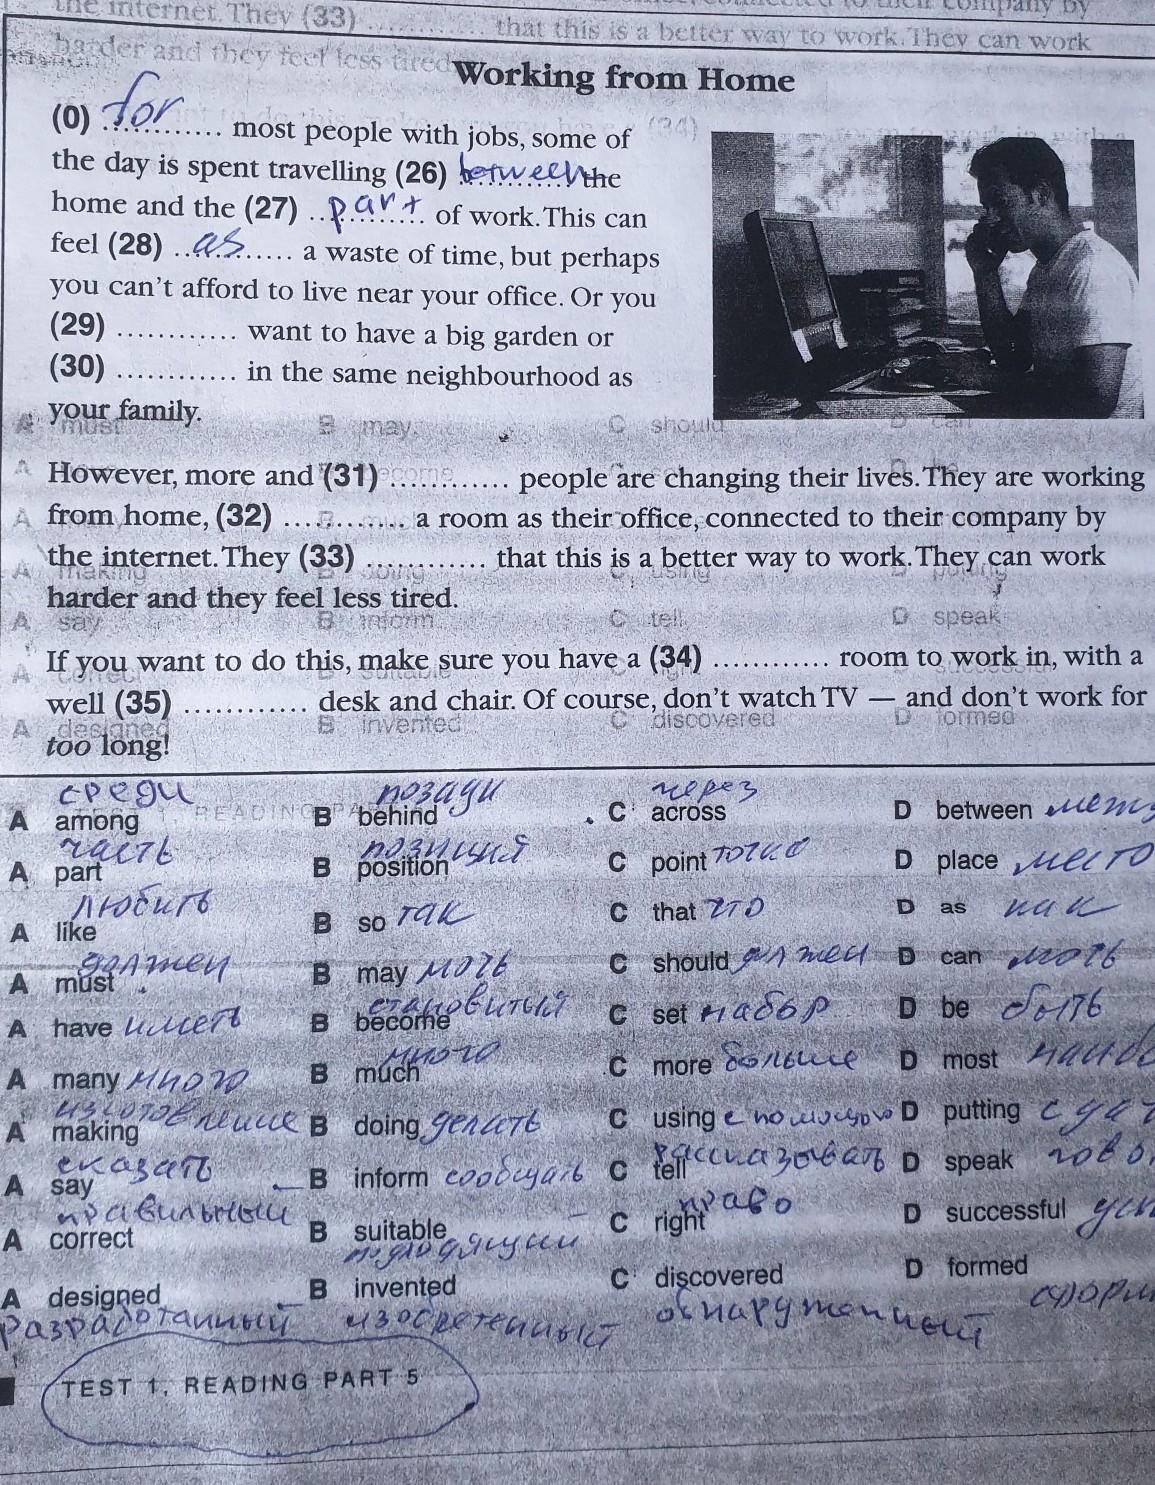 the internet. They (33) ............ that this is a better way to work. They can work
harder and they feel less tired
Working from Home
(0) for ............ most people with jobs, some of
the day is spent travelling (26) between the
home and the (27) part of work. This can
feel (28) as ............ a waste of time, but perhaps
you can't afford to live near your office. Or you
(29) ............ want to have a big garden or
(30) ............ in the same neighbourhood as
your family.
However, more and (31) ............ people are changing their lives. They are working
from home, (32) ............ a room as their office, connected to their company by
the internet. They (33) ............ that this is a better way to work. They can work
harder and they feel less tired.
If you want to do this, make sure you have a (34) ............ room to work in, with a
well (35) ............ desk and chair. Of course, don't watch TV — and don't work for
too long!
среди позади через
A among B behind C across D between
часть позиция
A part B position C point точка D place место
любить
A like B so так C that что D as как
должен
A must B may мочь C should должен D can мочь
становиться
A have иметь B become C set набор D be быть
много
A many много B much C more больше D most
изготовление
A making B doing делать C using с помощью D putting
сказать рассказовать
A say B inform сообщать C tell D speak
правильный право
A correct B suitable C right D successful
подходящий
A designed B invented C discovered D formed
Разработанный изобретенный обнаруженный
TEST 1, READING PART 5